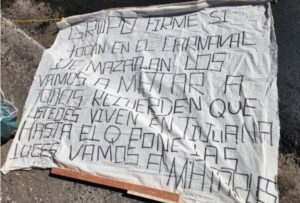 GRUPO FIRME SI
TOCAN EN EL CARNAVAL
DE MAZARLAN LOS
VAMOS A MATAR A
RECUERDEN QUE
USTEDES VIVEN EN TIJUANA
HASTA EL Q PONE LAS
LOSES VAMOS A